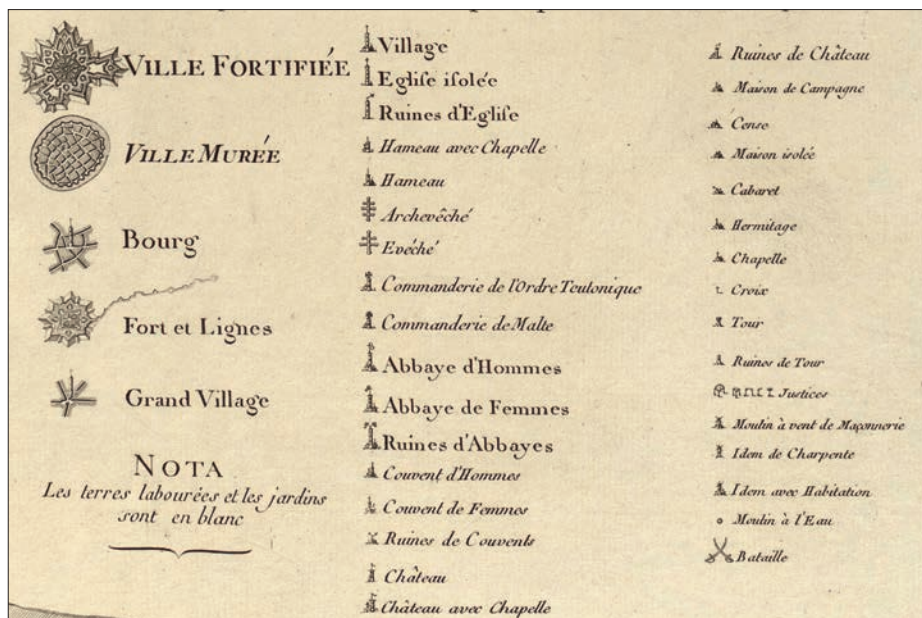 VILLE FORTIFIÉE
VILLE MURÉE
Bourg
Fort et Lignes
Grand Village
NOTA
Les terres labourées et les jardins
sont en blanc
Village
Egliſe iſolée
Ruines d'Egliſe
Hameau avec Chapelle
Hameau
Archevêché
Evéché
Commanderie de l'Ordre Teutonique
Commanderie de Malte
Abbaye d'Hommes
Abbaye de Femmes
Ruines d'Abbayes
Couvent d'Hommes
Couvent de Femmes
Ruines de Couvents
Château
Château avec Chapelle
Ruines de Château
Maison de Campagne
Cense
Maison isolée
Cabaret
Hermitage
Chapelle
Croix
Tour
Ruines de Tour
Justices
Moulin à vent de Maçonnerie
Idem de Charpente
Idem avec Habitation
Moulin à l'Eau
Bataille